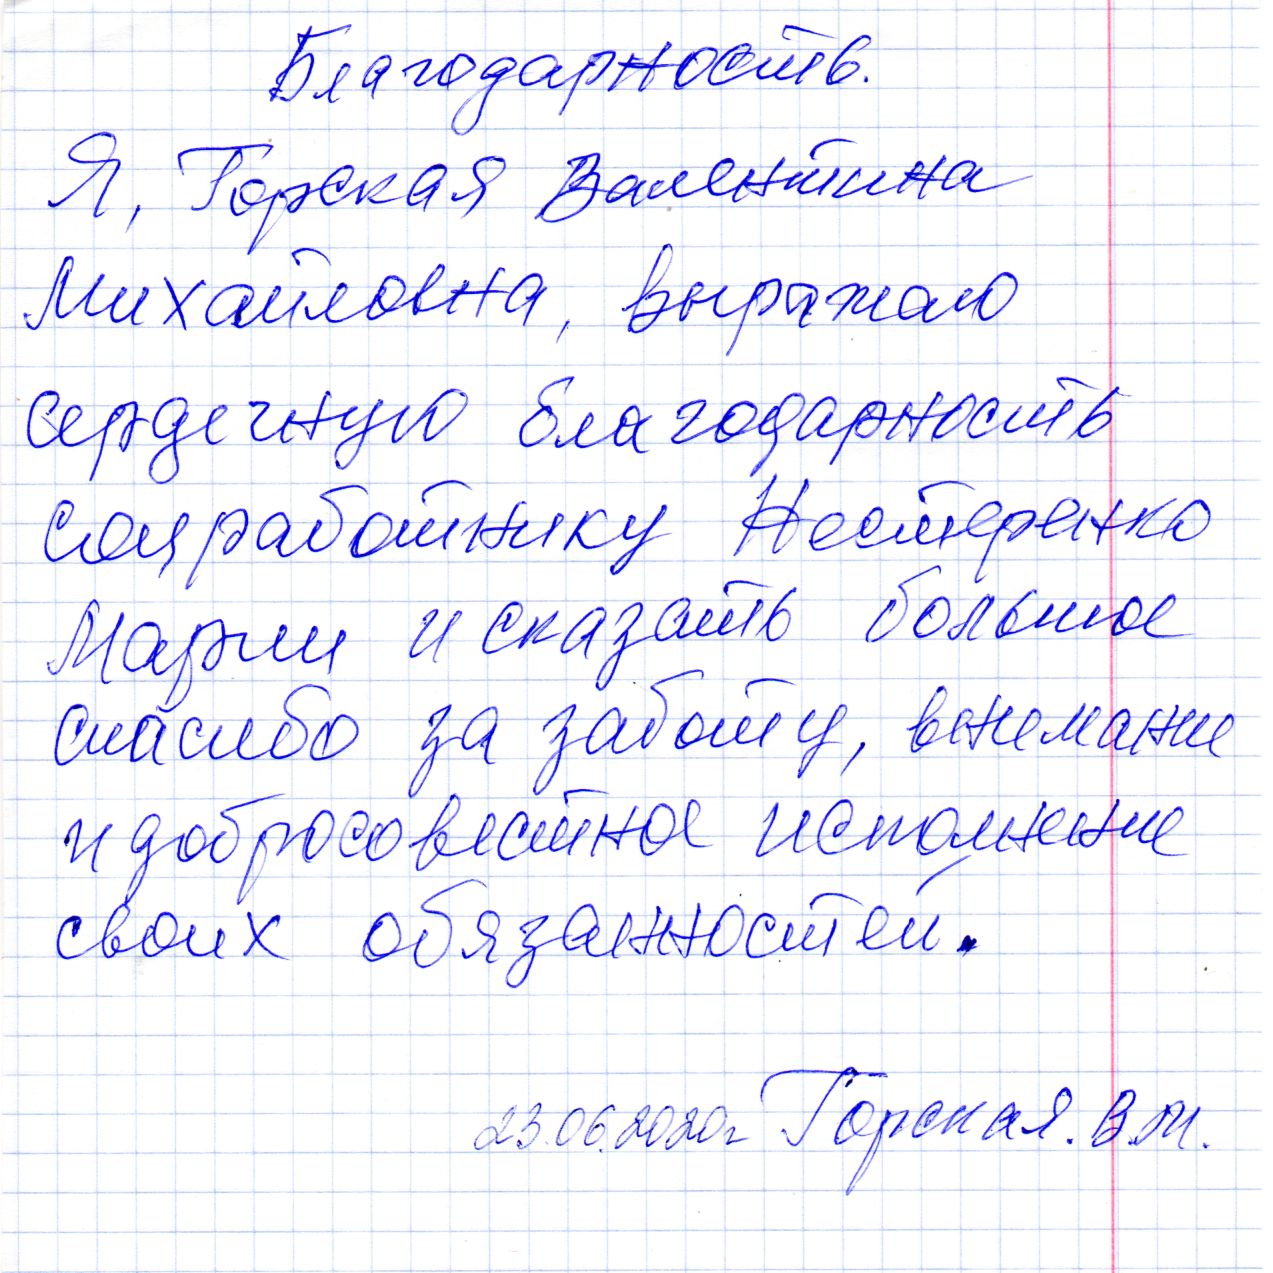 Благодарность.
Я, Горская Валентина
Михайловна, выражаю
сердечную благодарность
соцработнику Нестеренко
Марии и сказать большое
спасибо за заботу, внемание
и добросовестное исполнение
своих обязанностей.
23.06.2020г Горская. В.М.